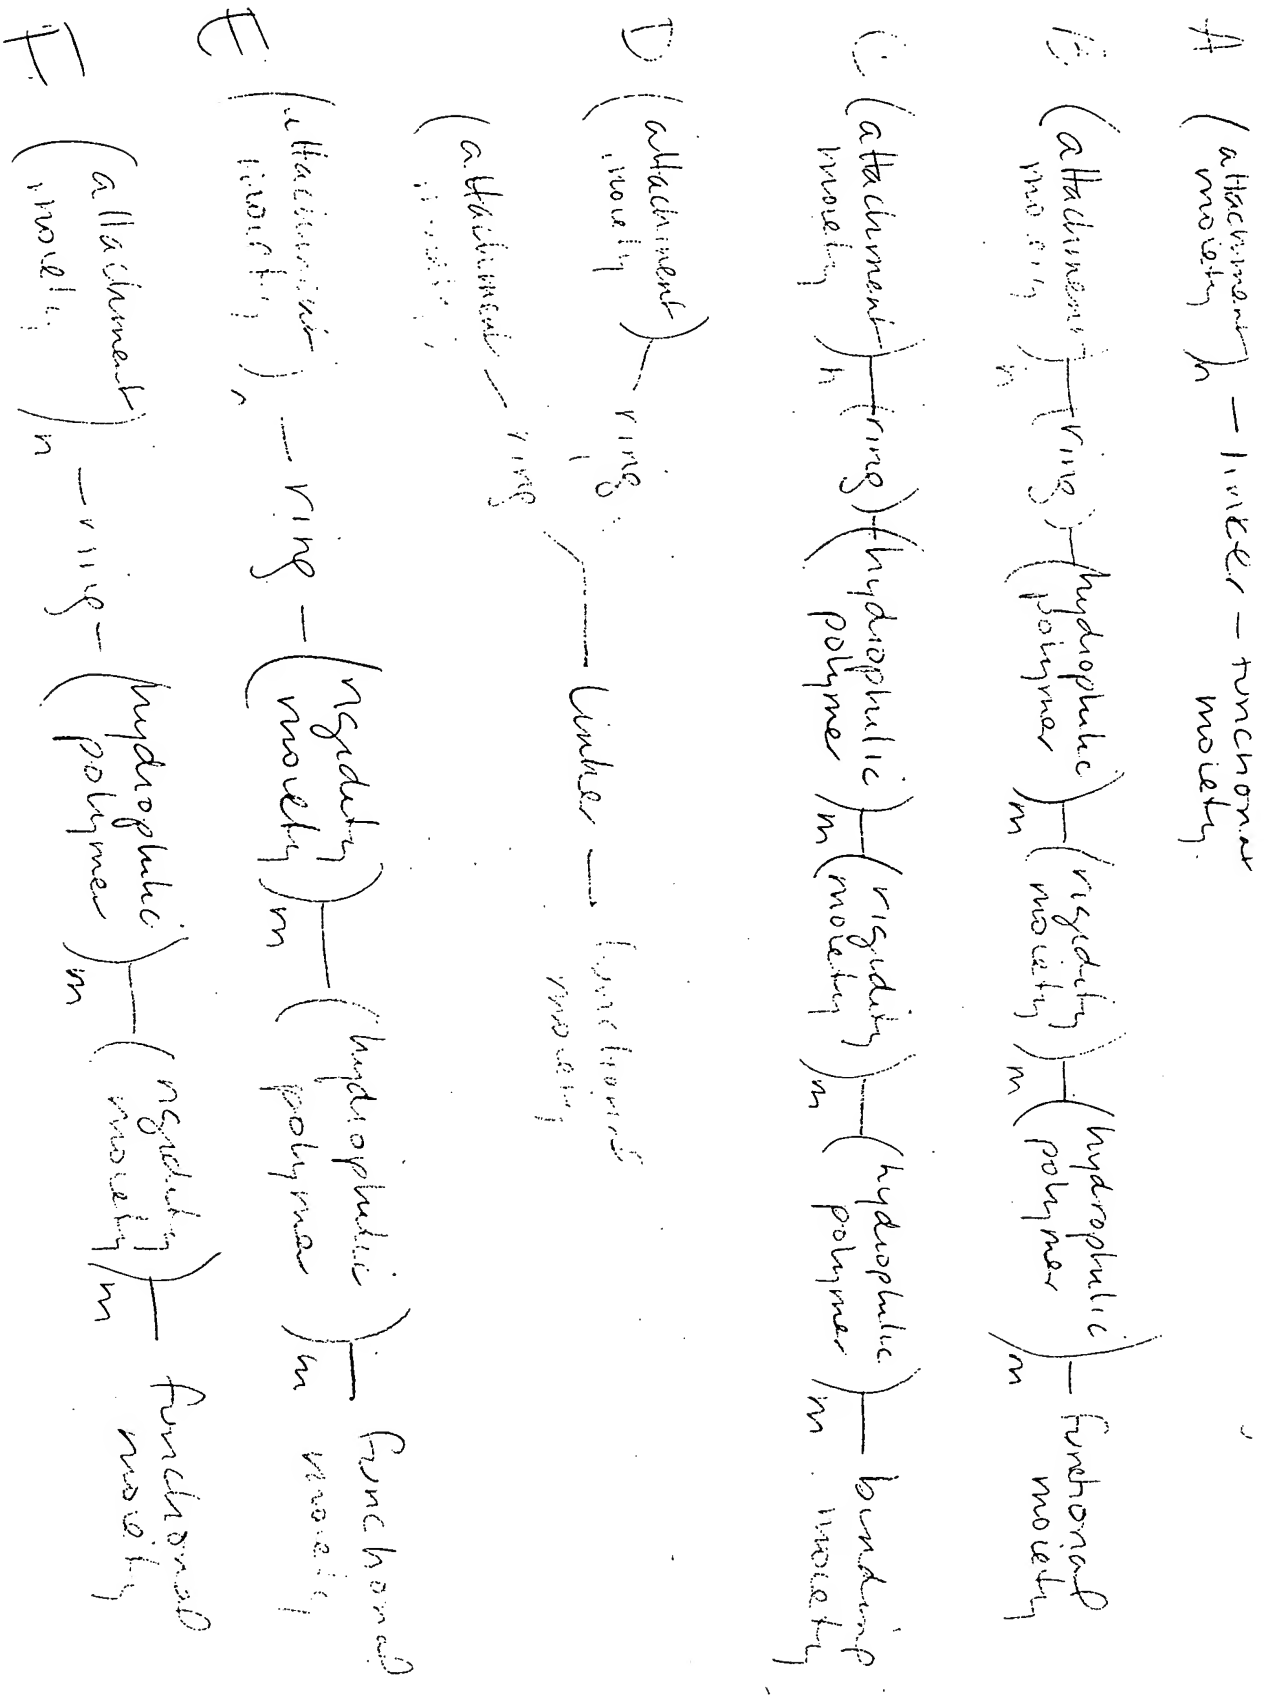 A (attachment moiety)n — linker — functional moiety.
B. (attachment moiety)n — (ring) — (hydrophilic polymer)m — (rigidity moiety)m — (hydrophilic polymer)m — functional moiety
C. (attachment moiety)n — (ring) — (hydrophilic polymer)m — (rigidity moiety)m — (hydrophilic polymer)m — binding moiety
D (attachment moiety) — ring
(attachment moiety — ring — Linker — functional moiety
E (attachment moiety)n — ring — (rigidity moiety)m — (hydrophilic polymer)m — functional moiety
F. (attachment moiety)n — ring — (hydrophilic polymer)m — (rigidity moiety)m — functional moiety